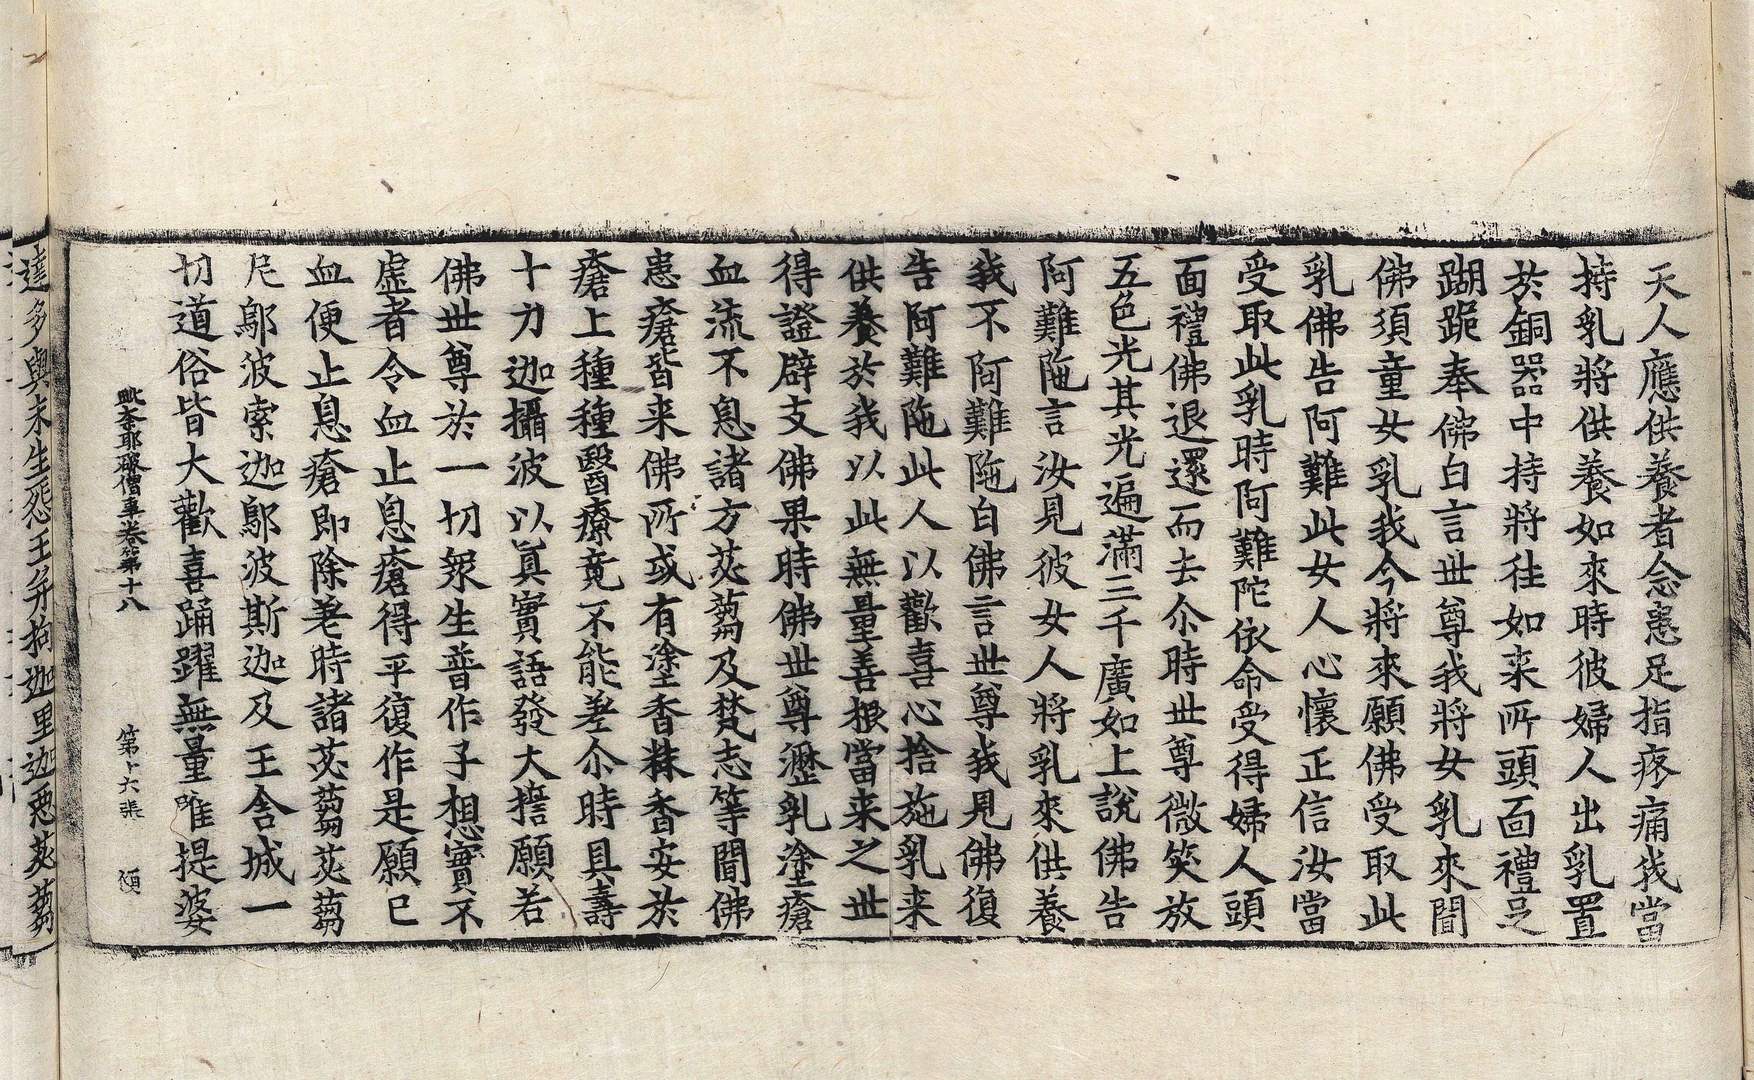 天人應供養者念患足指疼痛我當
持乳將供養如來時彼婦人出乳置
於銅器中持將往如来所頭面禮足
蹦跪奉佛白言世尊我將女乳來聞
佛須童女乳我今將來願佛受取此
乳佛告阿難此女人心懷正信汝當
受取此乳時阿難陀依命受得婦人頭
面禮佛退還而去尒時世尊微笑放
五色光其光遍滿三千廣如上說佛告
阿難陁言汝見彼女人將乳來供養
我不阿難陁白佛言世尊我見佛復
告阿難陁此人以歡喜心捨施乳来
供養於我以此無量善根當来之世
得證辟支佛果時佛世尊瀝乳塗瘡
血流不息諸方苾蒭及梵志等聞佛
患瘡皆来佛所或有塗香粖香安於
瘡上種種醫療竟不能差尒時具壽
十力迦攝波以真實語發大誓願若
佛世尊於一切衆生普作子想實不
虛者令血止息瘡得平復作是願已
血便止息瘡即除差時諸苾蒭苾蒭
尼鄔波索迦鄔波斯迦及王舍城一
切道俗皆大歡喜踊躍無量唯提婆
毗奈耶破僧事卷第十八 第十六張
達多與未生怨王并拘迦里迦惡苾蒭